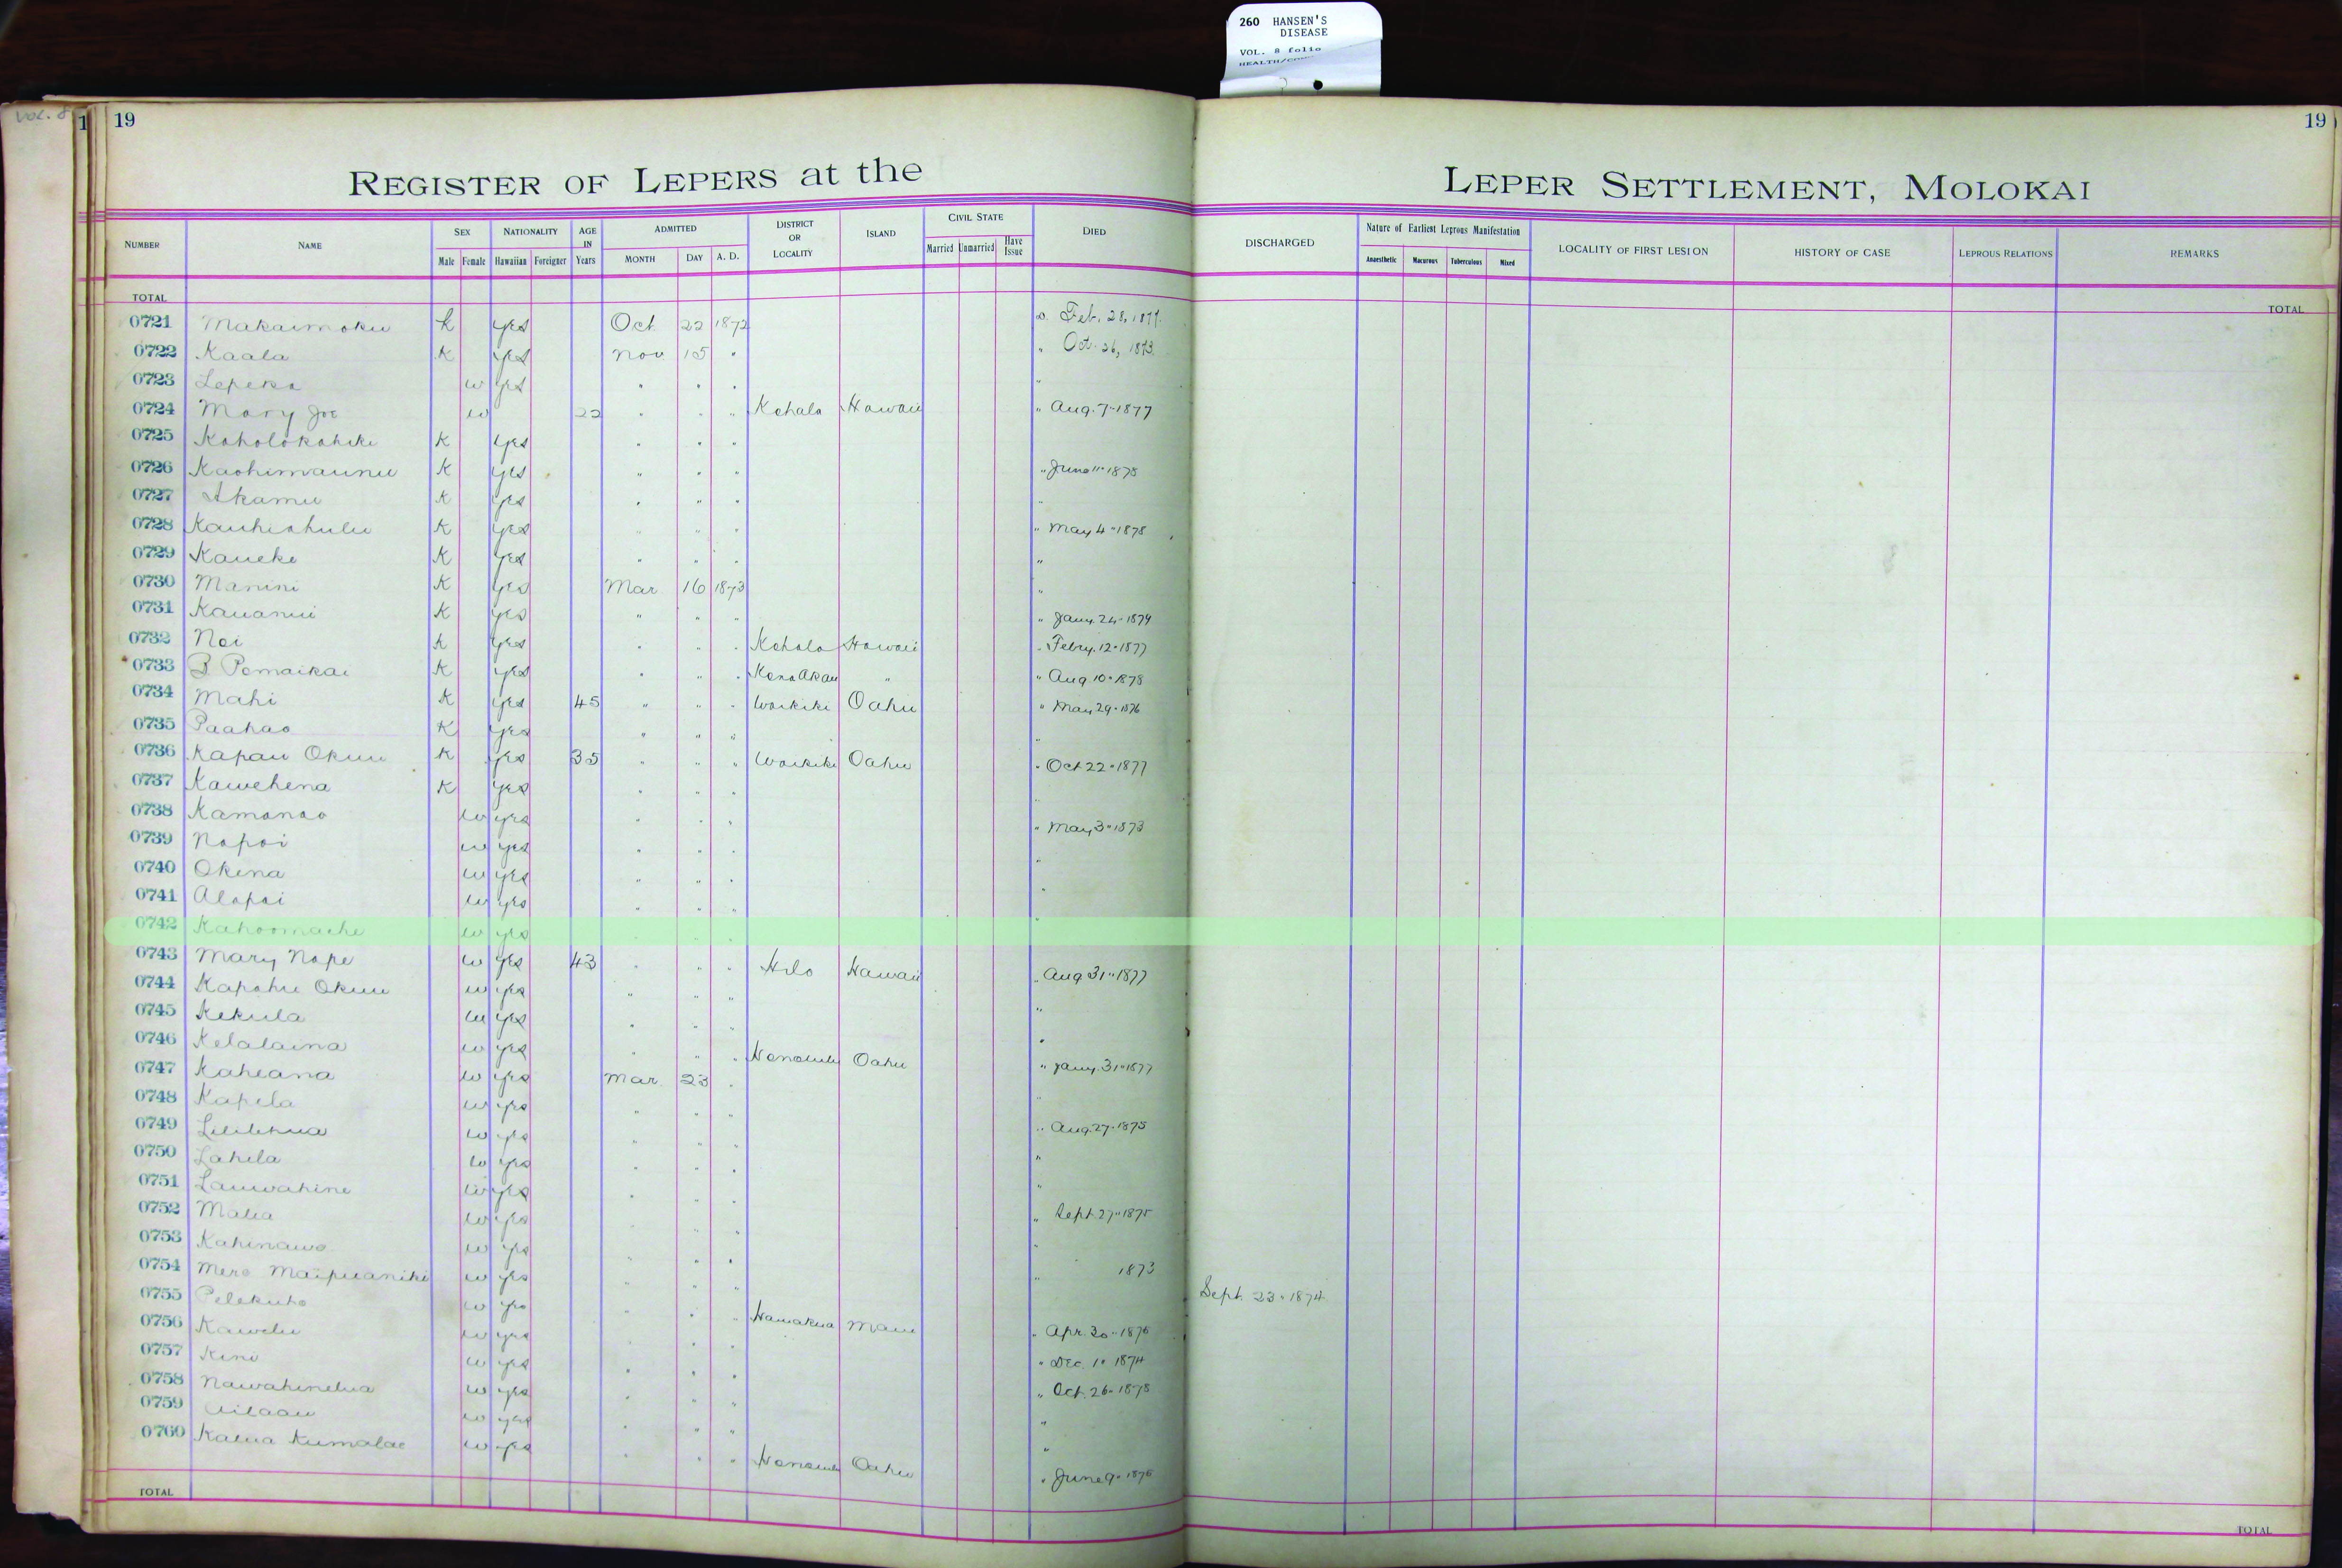 260 HANSEN'S
DISEASE
VOL. 8 folio
Vol. 8
1
19
19
REGISTER OF LEPERS at the LEPER SETTLEMENT, MOLOKAI
NUMBER NAME SEX Male Female NATIONALITY Hawaiian Foreigner AGE IN Years ADMITTED MONTH DAY A. D. DISTRICT OR LOCALITY ISLAND CIVIL STATE Married Unmarried Have Issue DIED DISCHARGED Nature of Earliest Leprous Manifestation Anaesthetic Macurous Tuberculous Mixed LOCALITY OF FIRST LESION HISTORY OF CASE LEPROUS RELATIONS REMARKS
TOTAL TOTAL
0721 Makaimoku K yes Oct 22 1872 Feb. 28, 1877.
0722 Kaala K yes Nov 15 " " Oct. 26, 1873.
0723 Lepeka w yes " " " "
0724 Mary Joe w 22 " " " Kohala Hawaii " Aug. 7-1877
0725 Koholokahiki K yes " " "
0726 Kaohimaunu K yes " " " " June 11-1878
0727 Akamu K yes " " " "
0728 Kauhiahulu K yes " " " " May 4-1878
0729 Kaueke K yes " " " "
0730 Manini K yes Mar 16 1873 "
0731 Kauanui K yes " " " " Jany. 24-1879
0732 Noi K yes " " " Kohala Hawaii " Febry. 12-1877
0733 B Pomaikai K yes " " " Kona Akau " " Aug 10-1878
0734 Mahi K yes 45 " " " Waikiki Oahu " May 29-1876
0735 Paahao K yes " " " "
0736 Kapau Okuu K yes 35 " " " Waikiki Oahu " Oct 22-1877
0737 Kawehena K yes " " " "
0738 Kamanao w yes " " " " May 3-1873
0739 Napoi w yes " " " "
0740 Okena w yes " " " "
0741 Alapai w yes " " " "
0742 Kahoomache w yes " " "
0743 Mary Nape w yes 43 " " " Hilo Hawaii " Aug 31-1877
0744 Kapahu Okuu w yes " " " "
0745 Kekula w yes " " " "
0746 Kelalaina w yes " " " Honolulu Oahu " Jany. 31-1877
0747 Kaheana w yes Mar. 23 " "
0748 Kapela w yes " " " " Aug. 27-1875
0749 Lililehua w yes " " " "
0750 Lahela w yes " " " "
0751 Lauwahine w yes " " " " Sept. 27-1875
0752 Malia w yes " " " "
0753 Kahinawe w yes " " " " 1873
0754 Mere Maipuaniki w yes " " " Sept. 23-1874
0755 Pelekuho w yes " " " Hamakua Maui " Apr. 30-1876
0756 Kawelu w yes " " " Dec. 1-1874
0757 Kini w yes " " " Oct. 26-1878
0758 Nawahinelua w yes " " " "
0759 Ailaau w yes " " " "
0760 Kalua Kumalae w yes " " " Honolulu Oahu " June 9-1876
TOTAL TOTAL